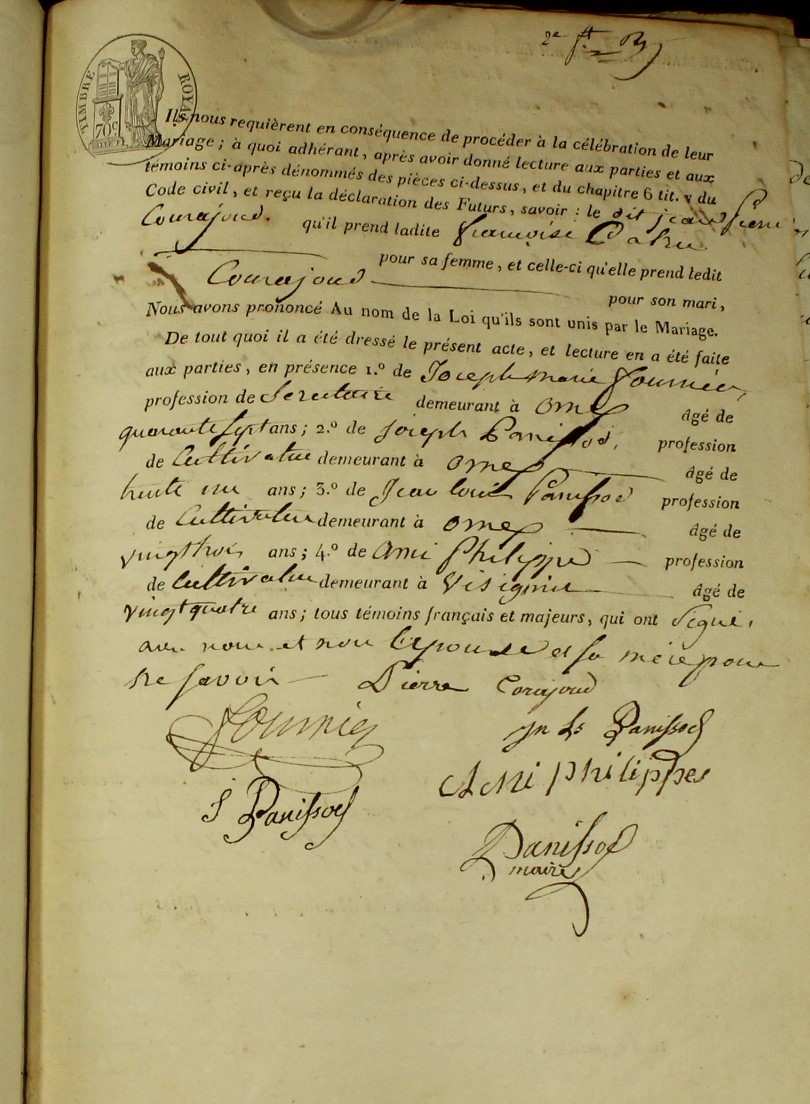 TIMBRE ROYAL
70c
2e
Ils nous requièrent en conséquence de procéder à la célébration de leur
Mariage; à quoi adhérant, après avoir donné lecture aux parties et aux
témoins ci-après dénommés des pièces ci-dessus, et du chapitre 6 tit. v du
Code civil, et reçu la déclaration des Futurs, savoir : le dit jean Pierre
Courajoud. qu'il prend ladite françoise
pour sa femme, et celle-ci qu'elle prend ledit
Courajoud pour son mari,
Nous avons prononcé Au nom de la Loi qu'ils sont unis par le Mariage.
De tout quoi il a été dressé le présent acte, et lecture en a été faite
aux parties, en présence 1.º de Joseph marie fournier,
profession de Secretaire demeurant à ornex âgé de
quarante sept ans; 2.º de joseph Panissod, profession
de Cultivateur demeurant à ornex âgé de
trente un ans; 3.º de Jean louis Panissod profession
de Cultivateur demeurant à ornex âgé de
vingt trois ans; 4.º de Ami Philippe profession
de Cultivateur demeurant à Visignin âgé de
vingt quatre ans; tous témoins français et majeurs, qui ont Signé,
avec nous et non l'epouse et sa mère pour
ne savoir Pierre Corajoud
fournier jn Ls Panissod
Ami philippe
J Panissod
Panissod
maire